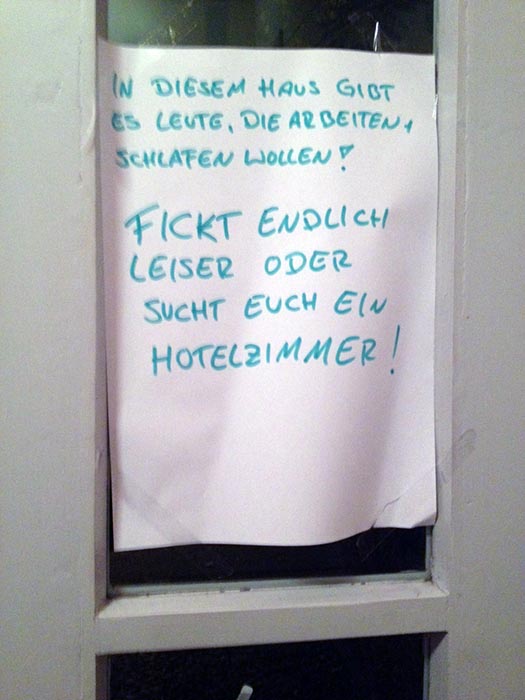 IN DIESEM HAUS GIBT
ES LEUTE, DIE ARBEITEN +
SCHLAFEN WOLLEN!
FICKT ENDLICH
LEISER ODER
SUCHT EUCH EIN
HOTELZIMMER!